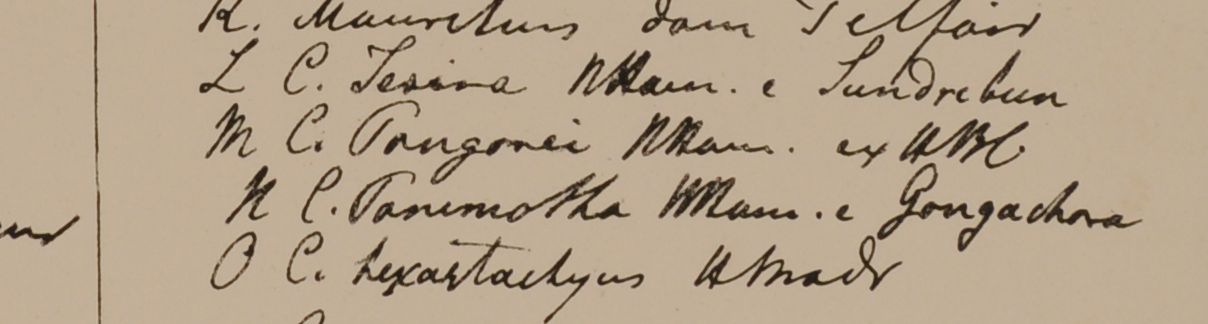 K. Mauritius dom Telfair
L C. Tesina HHam. e Sundrebun
M C. Pangorei HHam. ex HBC
N C. Panimotha HHam. e Gongachora
O C. hexastachyus HMadr